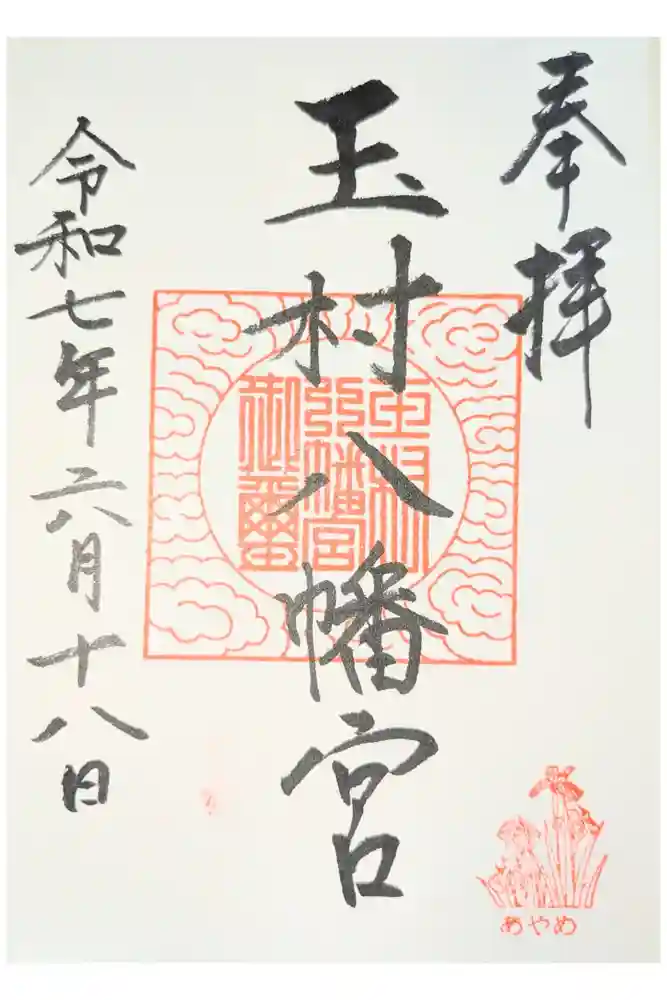 奉拝
玉村八幡宮
玉村
八幡宮
御璽
令和七年六月十八日
あやめ